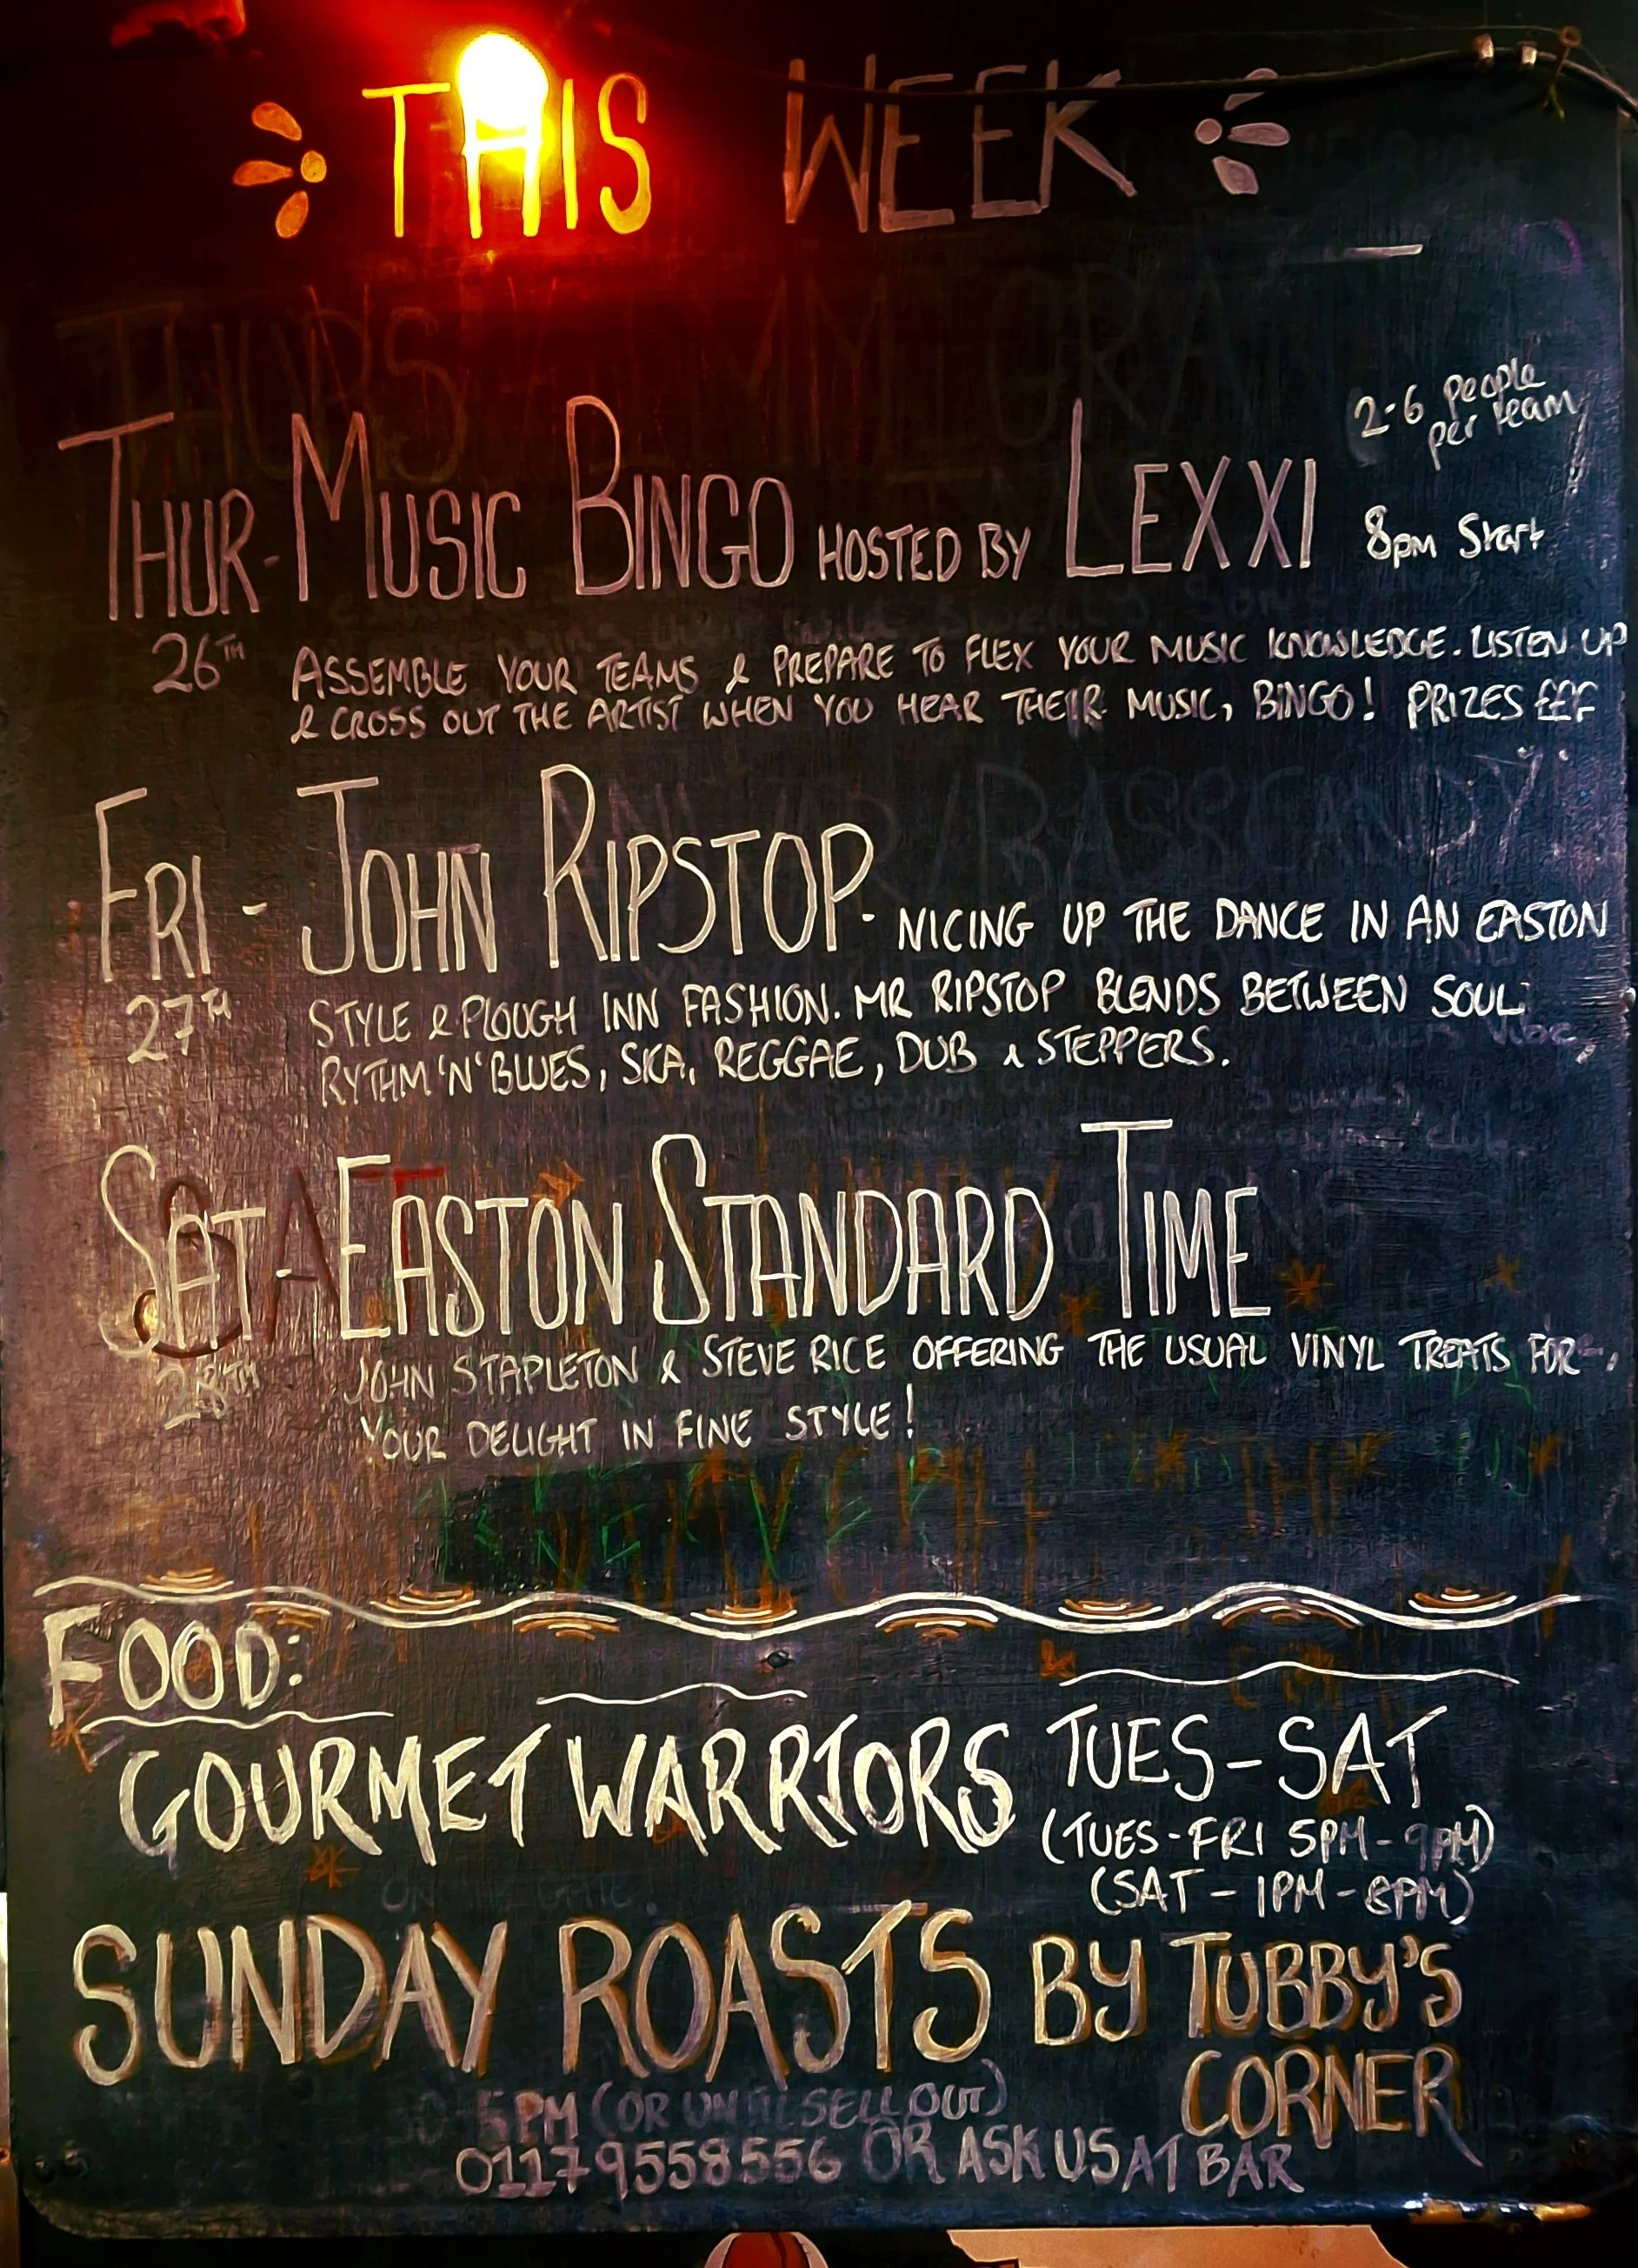 THIS WEEK
2-6 people
per team
THUR- MUSIC BINGO HOSTED BY LEXXI 8pm Start
26TH ASSEMBLE YOUR TEAMS & PREPARE TO FLEX YOUR MUSIC KNOWLEDGE. LISTEN UP
& CROSS OUT THE ARTIST WHEN YOU HEAR THEIR MUSIC, BINGO! PRIZES £££
FRI - JOHN RIPSTOP. NICING UP THE DANCE IN AN EASTON
27TH STYLE & PLOUGH INN FASHION. MR RIPSTOP BLENDS BETWEEN SOUL
RYTHM 'N' BLUES, SKA, REGGAE, DUB & STEPPERS.
SAT EASTON STANDARD TIME
28TH JOHN STAPLETON & STEVE RICE OFFERING THE USUAL VINYL TREATS FOR
YOUR DELIGHT IN FINE STYLE!
FOOD:
GOURMET WARRIORS TUES-SAT
(TUES-FRI 5PM-9PM)
(SAT-1PM-8PM)
SUNDAY ROASTS BY TUBBY'S
CORNER
5PM (OR UNTIL SELL OUT)
01179558556 OR ASK US AT BAR